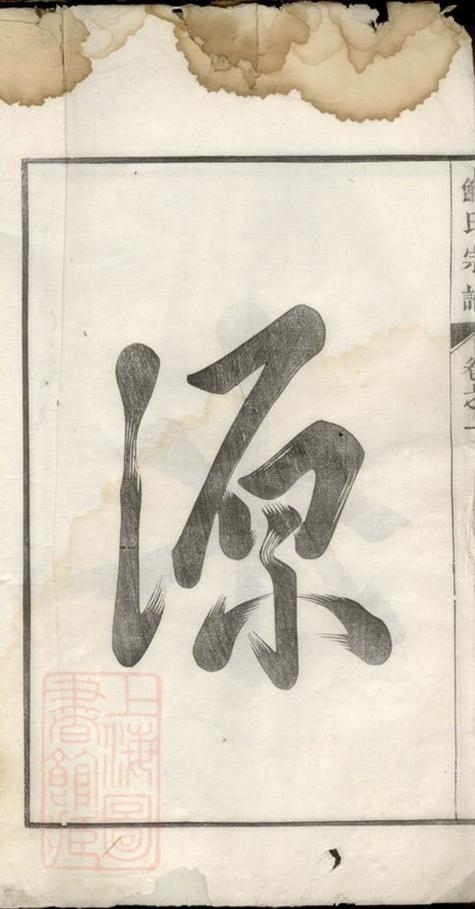 氏宗譜 卷之一
源
上海圖
書館藏